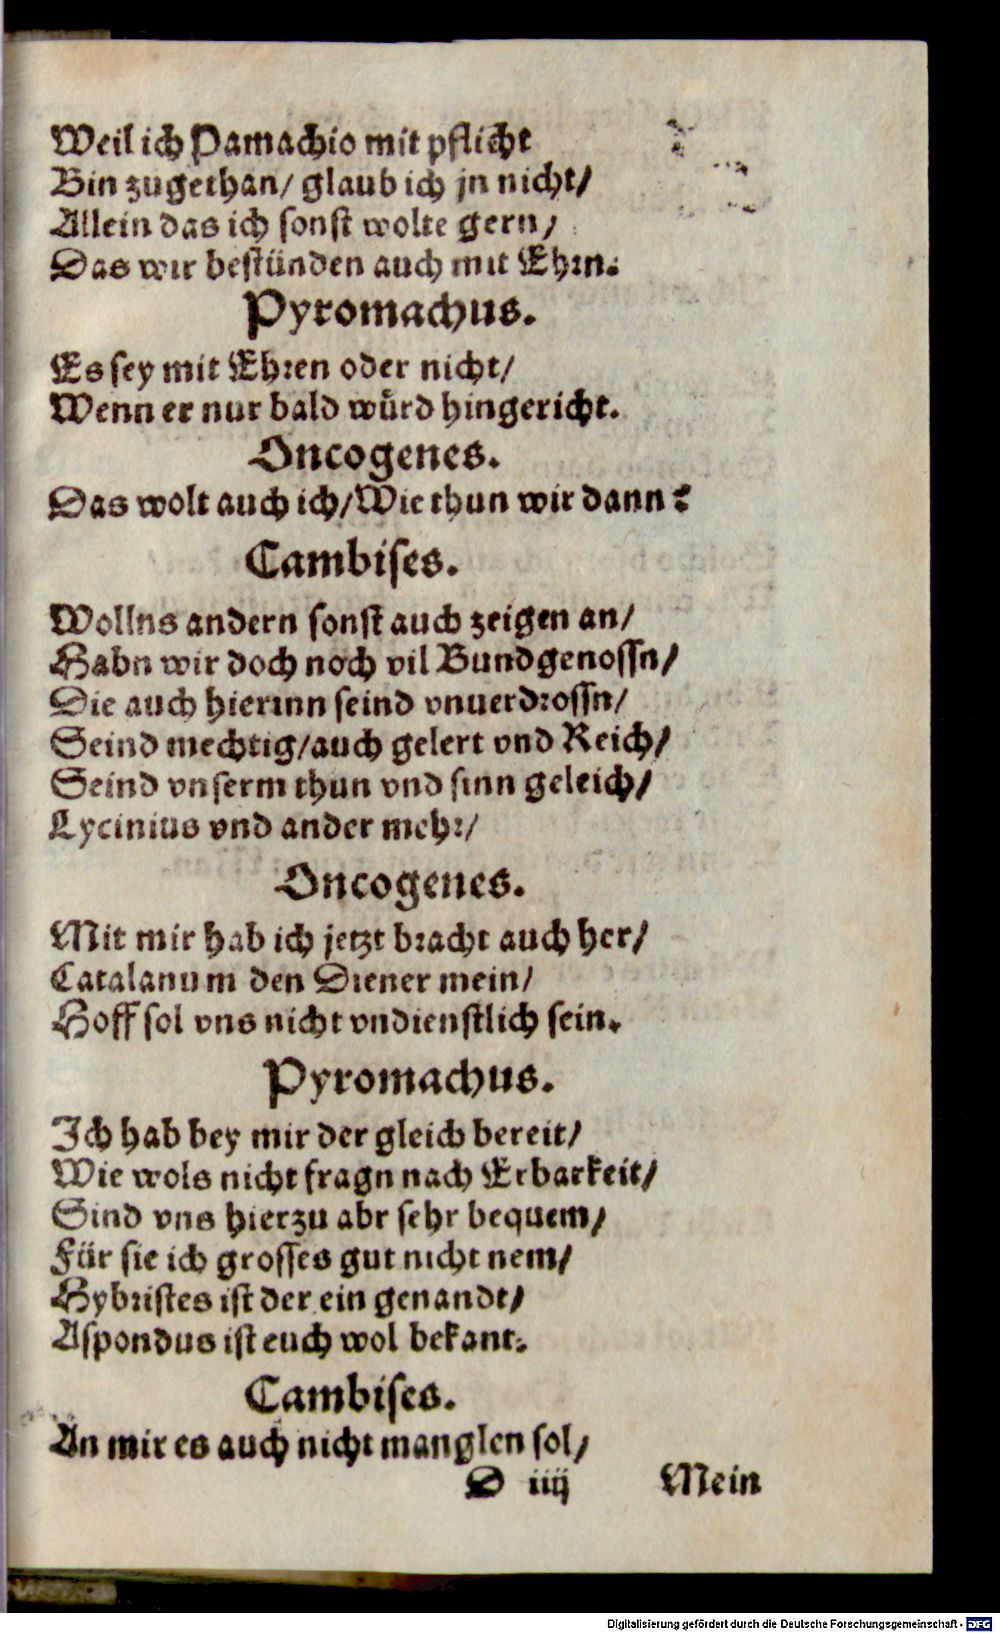 Weil ich Pamachio mit pflicht
Bin zugethan/ glaub ich jn nicht/
Allein das ich sonst wolte gern/
Das wir bestünden auch mit Ehrn.
Pyromachus.
Es sey mit Ehren oder nicht/
Wenn er nur bald wuͤrd hingericht.
Oncogenes.
Das wolt auch ich/Wie thun wir dann?
Cambises.
Wollns andern sonst auch zeigen an/
Habn wir doch noch vil Bundgenossn/
Die auch hierinn seind vnuerdrossn/
Seind mechtig/auch gelert vnd Reich/
Seind vnserm thun vnd sinn geleich/
Lycinius vnd ander mehr/
Oncogenes.
Mit mir hab ich jetzt bracht auch her/
Catalanum den Diener mein/
Hoff sol vns nicht vndienstlich sein.
Pyromachus.
Ich hab bey mir der gleich bereit/
Wie wols nicht fragn nach Erbarkeit/
Sind vns hierzu abr sehr bequem/
Für sie ich grosses gut nicht nem/
Hybristes ist der ein genandt/
Aspondus ist euch wol bekant.
Cambises.
An mir es auch nicht manglen sol/
D iiij Mein
Digitalisierung gefördert durch die Deutsche Forschungsgemeinschaft - DFG